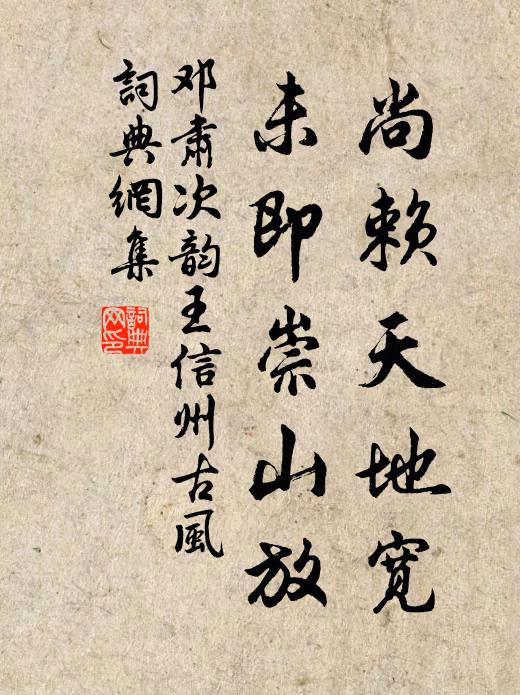 尚赖天地宽
未即崇山放
邓肃次韵王信州古風
詞典網集
詞典
网印